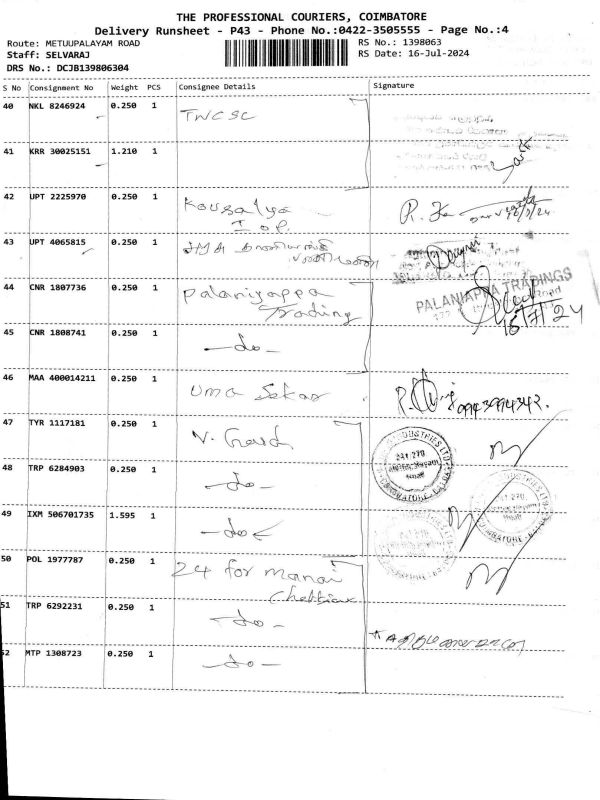 THE PROFESSIONAL COURIERS, COIMBATORE
Delivery Runsheet - P43 - Phone No.:0422-3505555 - Page No.:4
Route: METUUPALAYAM ROAD
RS No.: 1398063
Staff: SELVARAJ
RS Date: 16-Jul-2024
DRS No.: DCJB139806304
S No Consignment No Weight PCS Consignee Details Signature
40 NKL 8246924 0.250 1 TNCSC
41 KRR 30025151 1.210 1
42 UPT 2225970 0.250 1 Kousalya
I OP.
43 UPT 4065815 0.250 1
44 CNR 1807736 0.250 1 Palaniyappa
Trading
PALANIAPPA TRADINGS
Road
16/7/24
45 CNR 1808741 0.250 1 -do-
46 MAA 400014211 0.250 1 Uma Sekar
47 TYR 1117181 0.250 1
INDUSTRIES LTD
241 270
COIMBATORE
48 TRP 6284903 0.250 1 -do-
49 IXM 506701735 1.595 1 -do-
50 POL 1977787 0.250 1 24 for manai
Chettiar
51 TRP 6292231 0.250 1 -do-
52 MTP 1308723 0.250 1 -do-